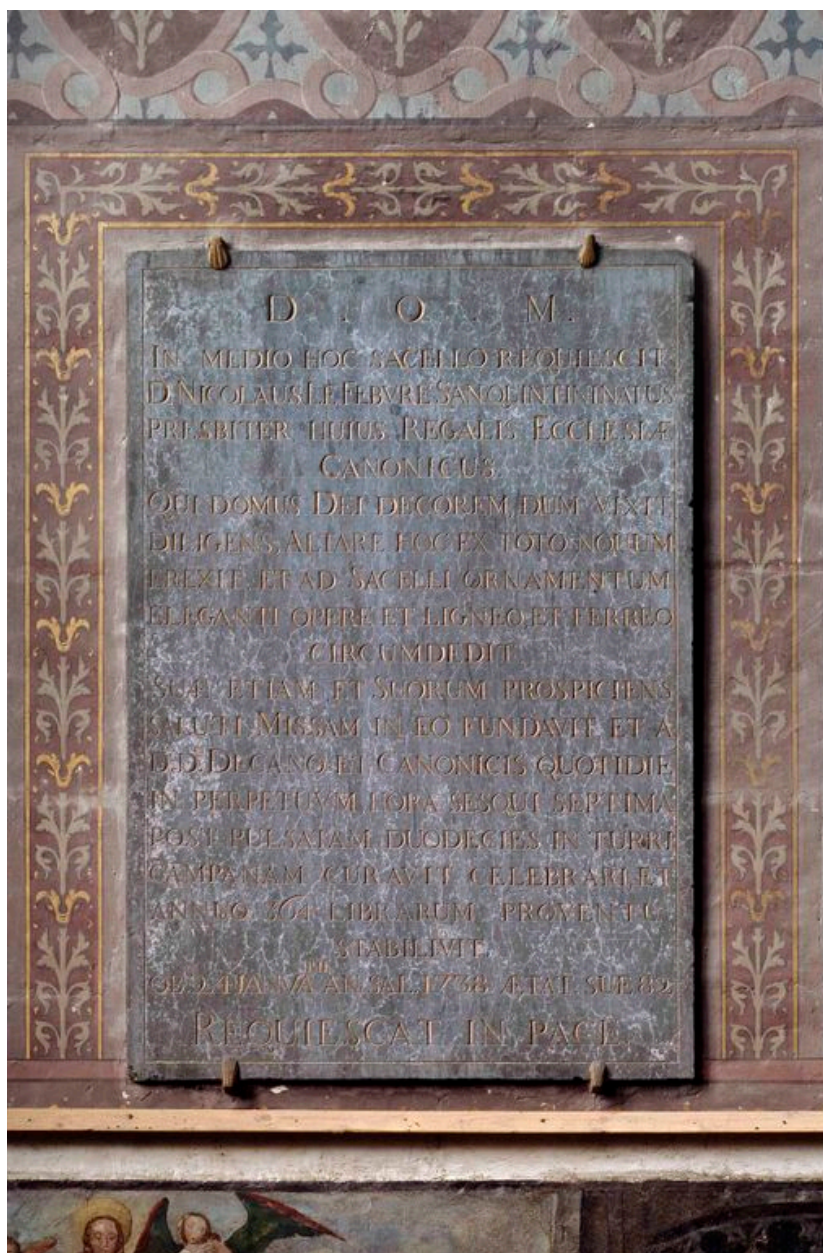 D . O . M .
IN MEDIO HOC SACELLO REQUIESCIT
D. NICOLAUS LE FEBVRE SANQUINTININATUS
PRESBITER HUIUS REGALIS ECCLESIÆ
CANONICUS
QUI DOMUS DEI DECOREM, DUM VIXIT
DILIGENS, ALTARE HOC EX TOTO NOUUM
EREXIT, ET AD SACELLI ORNAMENTUM
ELEGANTI OPERE ET LIGNEO, ET FERREO
CIRCUMDEDIT
SUÆ ETIAM ET SUORUM PROSPICIENS
SALUTI MISSAM IN EO FUNDAVIT ET A
D.D. DECANO ET CANONICIS QUOTIDIE
IN PERPETUVM HORA SESQUI SEPTIMA
POST PULSATAM DUODECIES IN TURRI
CAMPANAM CURAVIT CELEBRARI, ET
ANNUO 364 LIBRARUM PROVENTU
STABILIVIT.
OB. 24 JANUA AN. SAL. 1738 ÆTAT. SUÆ 82
REQUIESCAT IN PACE